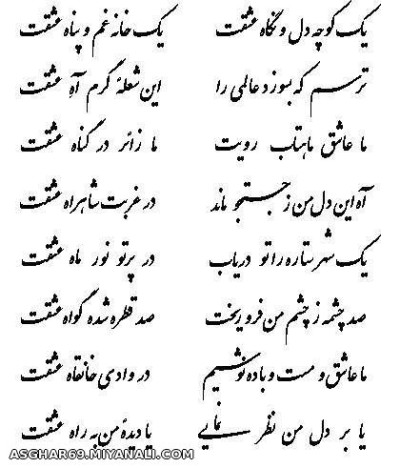 یک کوچه دل و نگاه عشقت یک خانه غم و پناه عشقت
ترسم که بسوزد عالمی را این شعلهٔ گرم آهِ عشقت
ما عاشق ماهتاب رویت ما زائر در گناه عشقت
آه این دل من ز جستجو ماند در غربت شاهراه عشقت
یک شهر ستاره را تو دریاب در پرتو نور ماه عشقت
صد چشمه ز چشم من فرو ریخت صد قطره شده گواه عشقت
ما عاشق و مست و باده نوشیم در وادی خانقاه عشقت
یا بر دل من نظر نمایی یا دیدهٔ من به راه عشقت
ASGHAR69.MIYANALI.COM